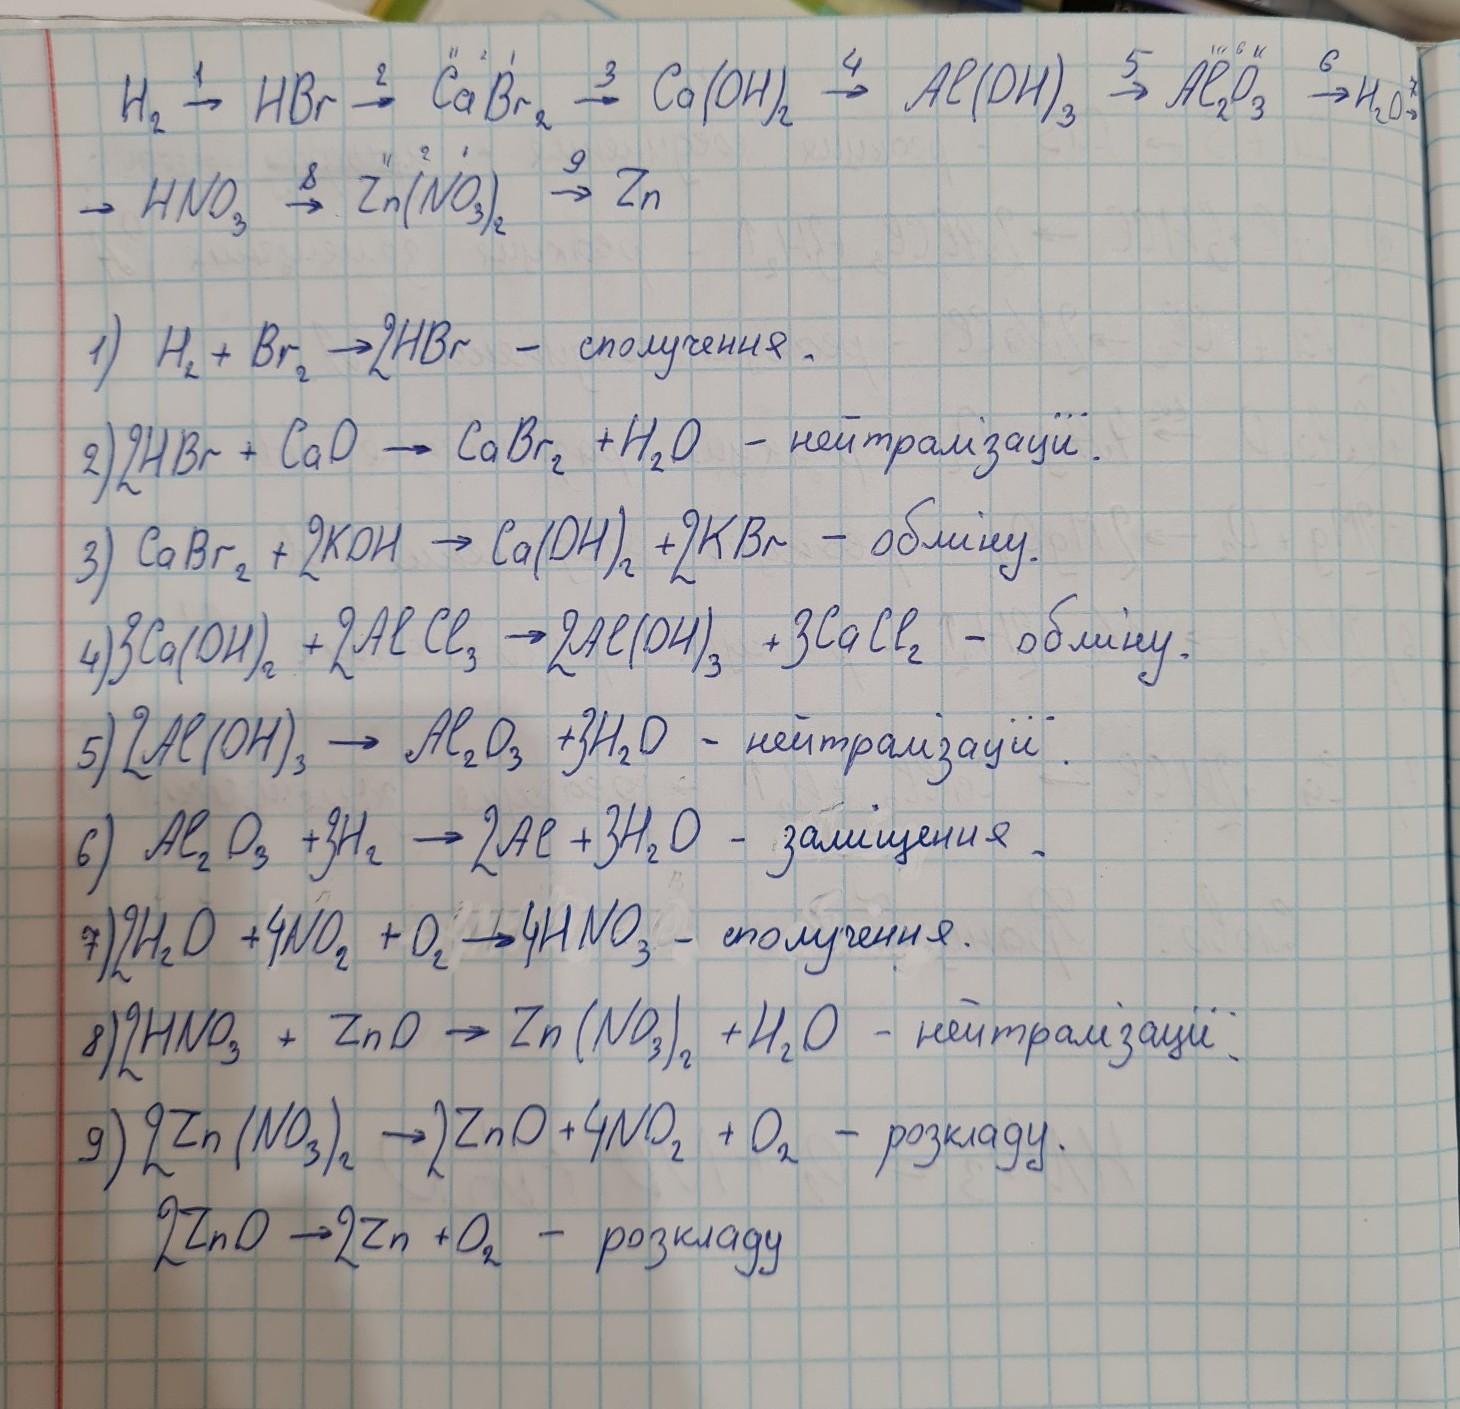 H₂ →¹ HBr →² CaBr₂ →³ Ca(OH)₂ →⁴ Al(OH)₃ →⁵ Al₂O₃ →⁶ H₂O →⁷
→ HNO₃ →⁸ Zn(NO₃)₂ →⁹ Zn
1) H₂ + Br₂ → 2HBr – сполучення.
2) 2HBr + CaO → CaBr₂ + H₂O – нейтралізації.
3) CaBr₂ + 2KOH → Ca(OH)₂ + 2KBr – обміну.
4) 3Ca(OH)₂ + 2AlCl₃ → 2Al(OH)₃ + 3CaCl₂ – обміну.
5) 2Al(OH)₃ → Al₂O₃ + 3H₂O – нейтралізації.
6) Al₂O₃ + 3H₂ → 2Al + 3H₂O – заміщення.
7) 2H₂O + 4NO₂ + O₂ → 4HNO₃ – сполучення.
8) 2HNO₃ + ZnO → Zn(NO₃)₂ + H₂O – нейтралізації.
9) 2Zn(NO₃)₂ → 2ZnO + 4NO₂ + O₂ – розкладу.
2ZnO → 2Zn + O₂ – розкладу